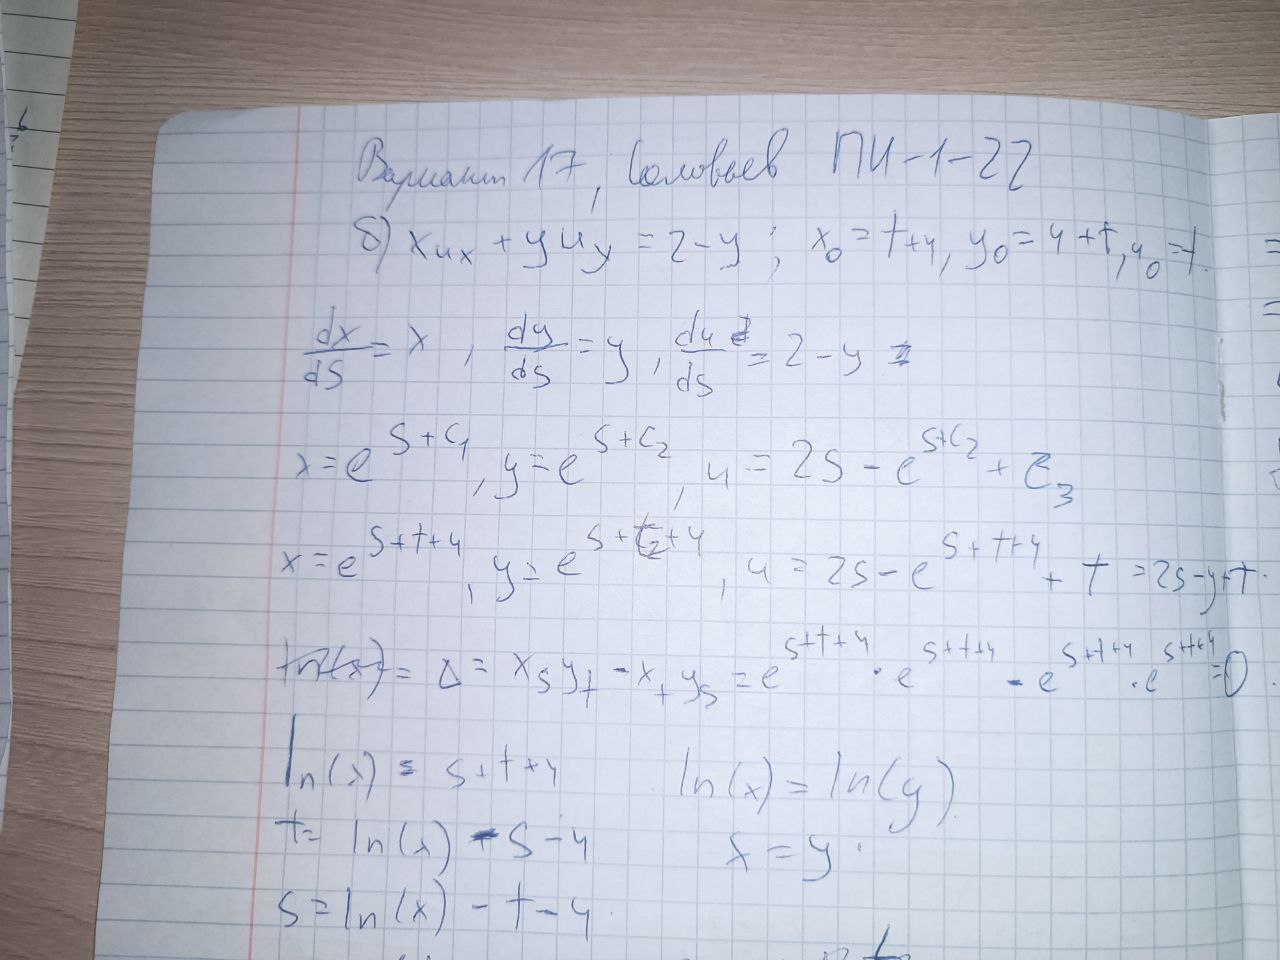 Вариант 17, Соловьев ПИ-1-22
б) xux + yuy = 2-y; x0 = t+4, y0 = 4+t, u0 = t.
dx/ds = x, dy/ds = y, du/ds = 2-y
x = e^(s+c1), y = e^(s+c2), u = 2s - e^(s+c2) + c3
x = e^(s+t+4), y = e^(s+t+4), u = 2s - e^(s+t+4) + t = 2s-y+t.
Δ = xs yt - xt ys = e^(s+t+4) · e^(s+t+4) - e^(s+t+4) · e^(s+t+4) = 0.
ln(x) = s+t+4 ln(x) = ln(y).
t = ln(x) - s - 4 x = y.
s = ln(x) - t - 4.